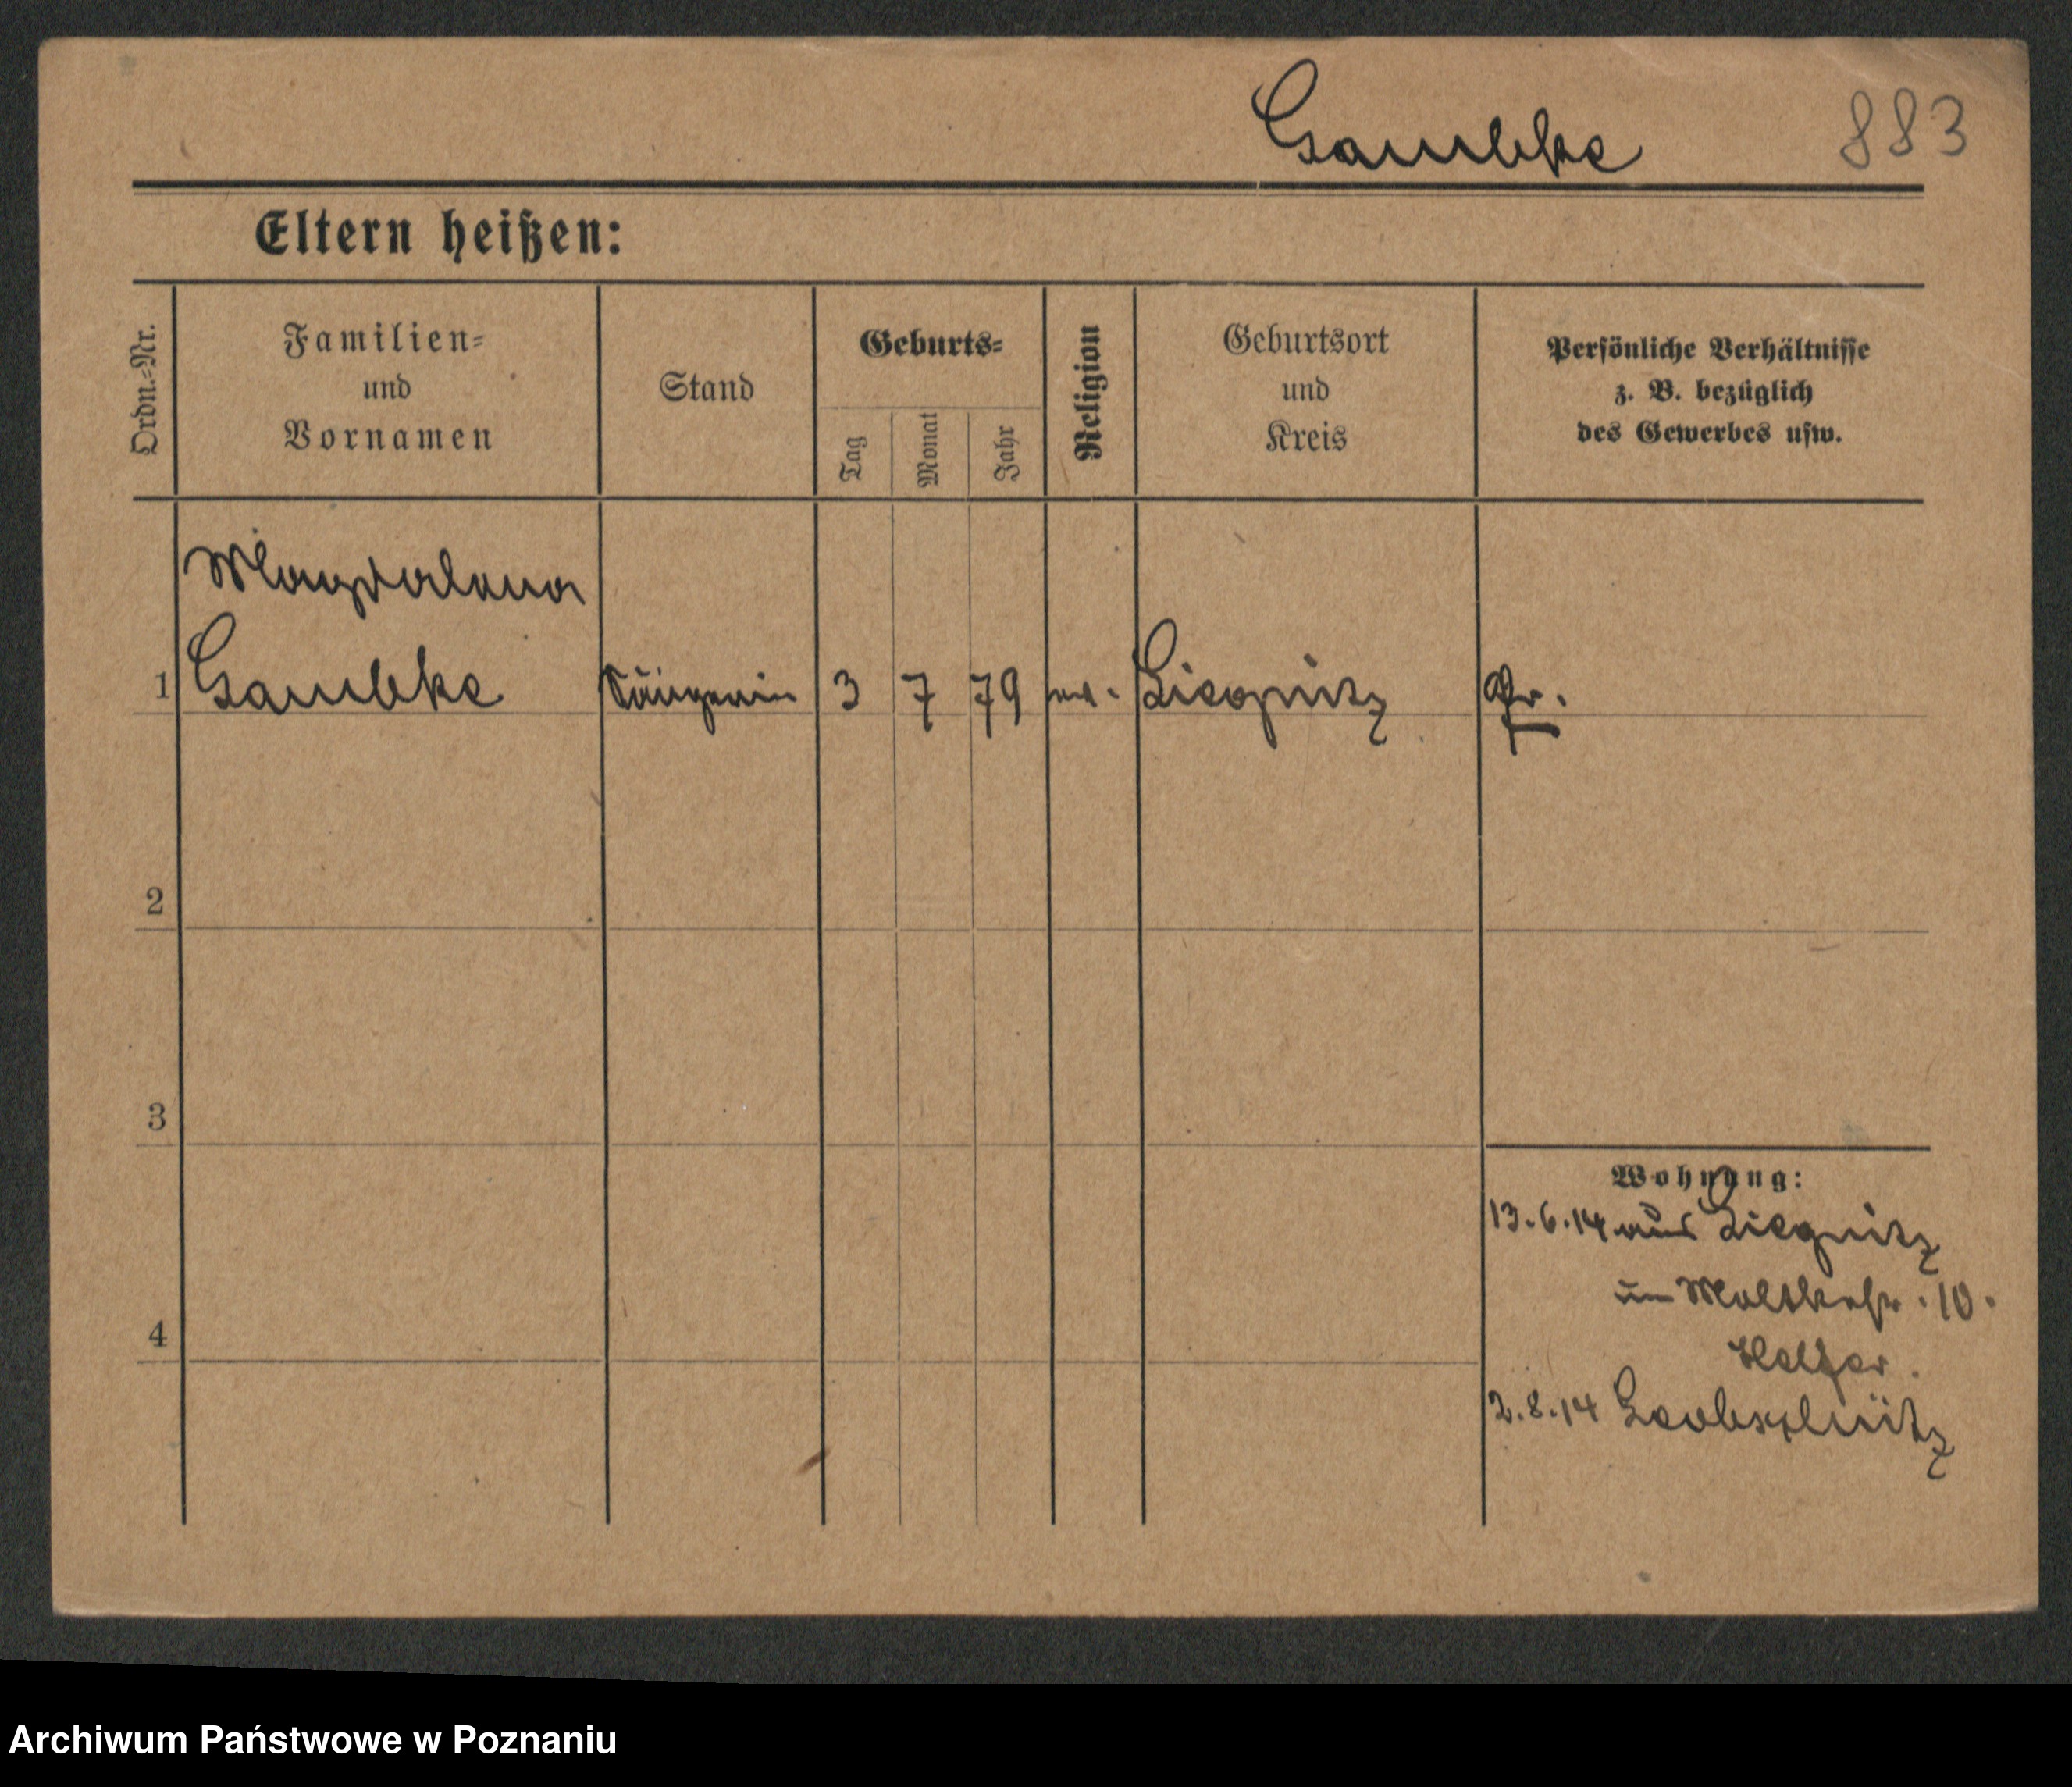 Gambke 883
Eltern heißen:
Ordn.-Nr.
Familien-
und
Vornamen
Stand
Geburts-
Tag
Monat
Jahr
Religion
Geburtsort
und
Kreis
Persönliche Verhältnisse
z. B. bezüglich
des Gewerbes usw.
Magdalena
1 Gambke Sängerin 3 7 79 ev. Liegnitz Pr.
2
3
4
Wohnung:
13.6.14 aus Liegnitz
Moltkestr. 10.
2.8.14 Leobschütz
Archiwum Państwowe w Poznaniu